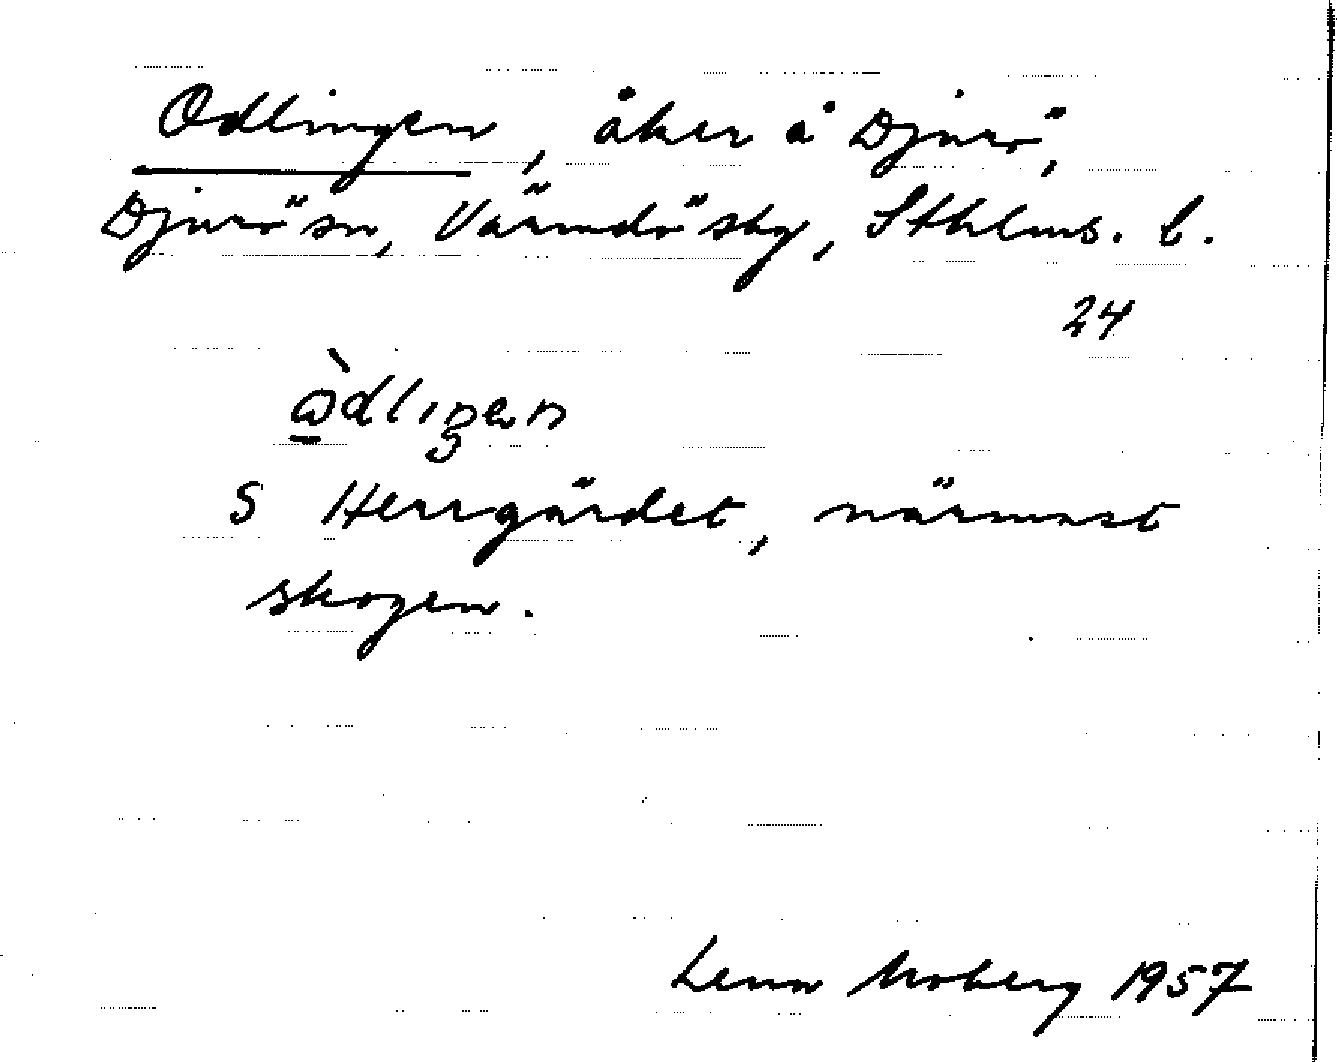 Odlingen, åker å Djurö,
Djurö sn, Värmdö sky, Sthlms. l.
24
S Herrgärdet, närmast
skogen.
Lena Moberg 1957